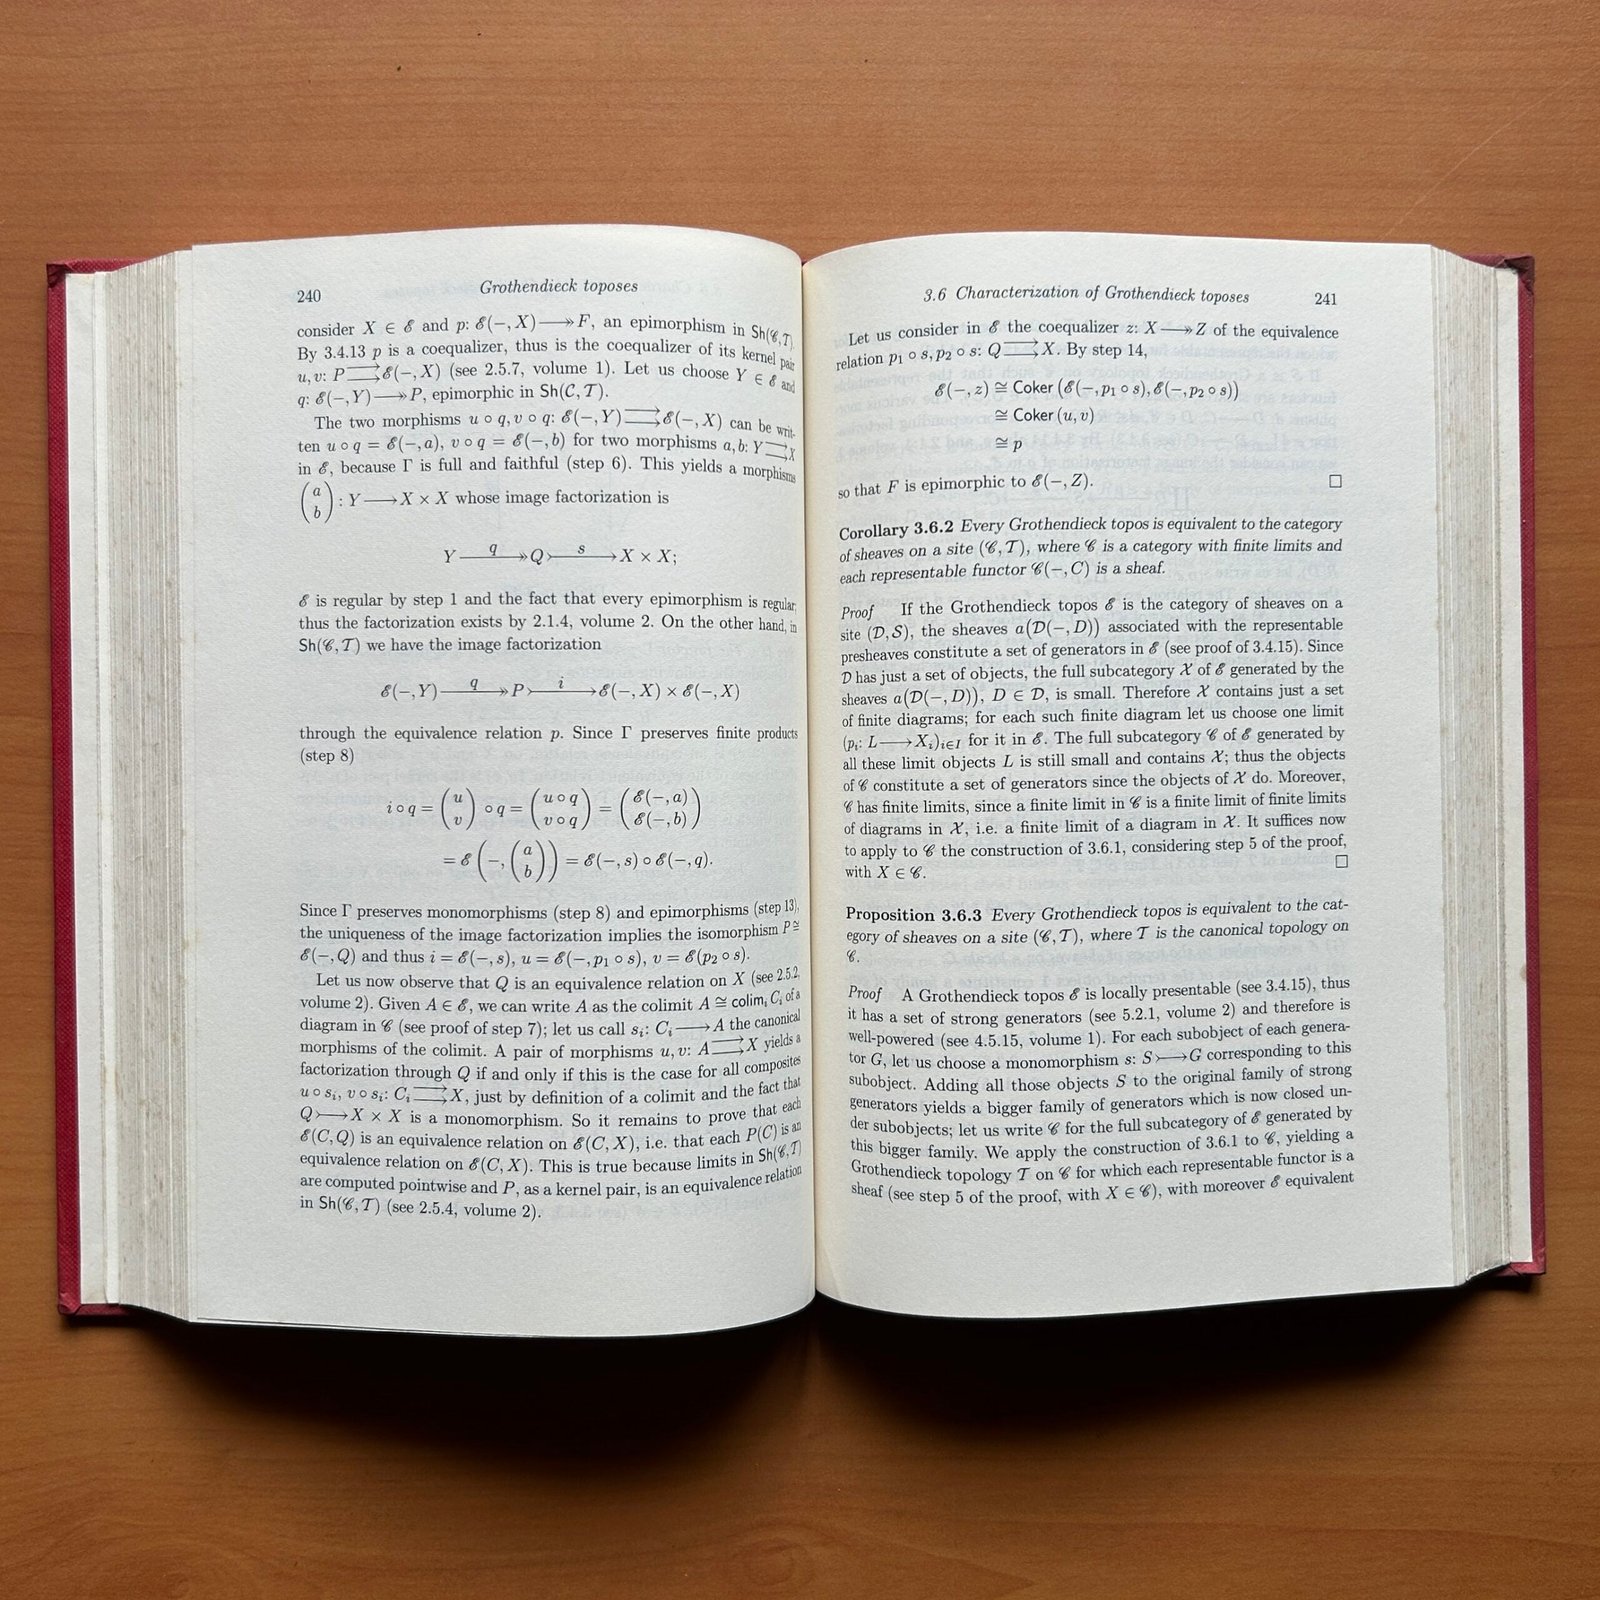 240
Grothendieck toposes
consider X ∈ ℰ and p: ℰ(−, X)⟶≫F, an epimorphism in Sh(𝒞, 𝒯).
By 3.4.13 p is a coequalizer, thus is the coequalizer of its kernel pair
u, v: P⇉ℰ(−, X) (see 2.5.7, volume 1). Let us choose Y ∈ ℰ and
q: ℰ(−, Y)⟶≫P, epimorphic in Sh(C, 𝒯).
The two morphisms u ∘ q, v ∘ q: ℰ(−, Y)⇉ℰ(−, X) can be writ-
ten u ∘ q = ℰ(−, a), v ∘ q = ℰ(−, b) for two morphisms a, b: Y⇉X
in ℰ, because Γ is full and faithful (step 6). This yields a morphisms
(a b) : Y⟶X × X whose image factorization is
Y —q→≫Q>—s→X × X;
ℰ is regular by step 1 and the fact that every epimorphism is regular,
thus the factorization exists by 2.1.4, volume 2. On the other hand, in
Sh(𝒞, 𝒯) we have the image factorization
ℰ(−, Y) —q→≫P>—i→ℰ(−, X) × ℰ(−, X)
through the equivalence relation p. Since Γ preserves finite products
(step 8)
i ∘ q = (u v) ∘ q = (u ∘ q v ∘ q) = (ℰ(−, a) ℰ(−, b))
= ℰ(−, (a b)) = ℰ(−, s) ∘ ℰ(−, q).
Since Γ preserves monomorphisms (step 8) and epimorphisms (step 13),
the uniqueness of the image factorization implies the isomorphism P ≅
ℰ(−, Q) and thus i = ℰ(−, s), u = ℰ(−, p₁ ∘ s), v = ℰ(p₂ ∘ s).
Let us now observe that Q is an equivalence relation on X (see 2.5.2,
volume 2). Given A ∈ ℰ, we can write A as the colimit A ≅ colimᵢ Cᵢ of a
diagram in 𝒞 (see proof of step 7); let us call sᵢ: Cᵢ⟶A the canonical
morphisms of the colimit. A pair of morphisms u, v: A⇉X yields a
factorization through Q if and only if this is the case for all composites
u ∘ sᵢ, v ∘ sᵢ: Cᵢ⇉X, just by definition of a colimit and the fact that
Q>⟶X × X is a monomorphism. So it remains to prove that each
ℰ(C, Q) is an equivalence relation on ℰ(C, X), i.e. that each P(C) is an
equivalence relation on ℰ(C, X). This is true because limits in Sh(𝒞, 𝒯)
are computed pointwise and P, as a kernel pair, is an equivalence relation
in Sh(𝒞, 𝒯) (see 2.5.4, volume 2).
3.6 Characterization of Grothendieck toposes
241
Let us consider in ℰ the coequalizer z: X⟶≫Z of the equivalence
relation p₁ ∘ s, p₂ ∘ s: Q⇉X. By step 14,
ℰ(−, z) ≅ Coker (ℰ(−, p₁ ∘ s), ℰ(−, p₂ ∘ s))
≅ Coker (u, v)
≅ p
so that F is epimorphic to ℰ(−, Z). □
Corollary 3.6.2 Every Grothendieck topos is equivalent to the category
of sheaves on a site (𝒞, 𝒯), where 𝒞 is a category with finite limits and
each representable functor 𝒞(−, C) is a sheaf.
Proof If the Grothendieck topos ℰ is the category of sheaves on a
site (𝒟, 𝒮), the sheaves a(𝒟(−, D)) associated with the representable
presheaves constitute a set of generators in ℰ (see proof of 3.4.15). Since
𝒟 has just a set of objects, the full subcategory 𝒳 of ℰ generated by the
sheaves a(𝒟(−, D)), D ∈ 𝒟, is small. Therefore 𝒳 contains just a set
of finite diagrams; for each such finite diagram let us choose one limit
(pᵢ: L⟶Xᵢ)ᵢ∈I for it in ℰ. The full subcategory 𝒞 of ℰ generated by
all these limit objects L is still small and contains 𝒳; thus the objects
of 𝒞 constitute a set of generators since the objects of 𝒳 do. Moreover,
𝒞 has finite limits, since a finite limit in 𝒞 is a finite limit of finite limits
of diagrams in 𝒳, i.e. a finite limit of a diagram in 𝒳. It suffices now
to apply to 𝒞 the construction of 3.6.1, considering step 5 of the proof,
with X ∈ 𝒞. □
Proposition 3.6.3 Every Grothendieck topos is equivalent to the cat-
egory of sheaves on a site (𝒞, 𝒯), where 𝒯 is the canonical topology on
𝒞.
Proof A Grothendieck topos ℰ is locally presentable (see 3.4.15), thus
it has a set of strong generators (see 5.2.1, volume 2) and therefore is
well-powered (see 4.5.15, volume 1). For each subobject of each genera-
tor G, let us choose a monomorphism s: S>⟶G corresponding to this
subobject. Adding all those objects S to the original family of strong
generators yields a bigger family of generators which is now closed un-
der subobjects; let us write 𝒞 for the full subcategory of ℰ generated by
this bigger family. We apply the construction of 3.6.1 to 𝒞, yielding a
Grothendieck topology 𝒯 on 𝒞 for which each representable functor is a
sheaf (see step 5 of the proof, with X ∈ 𝒞), with moreover ℰ equivalent